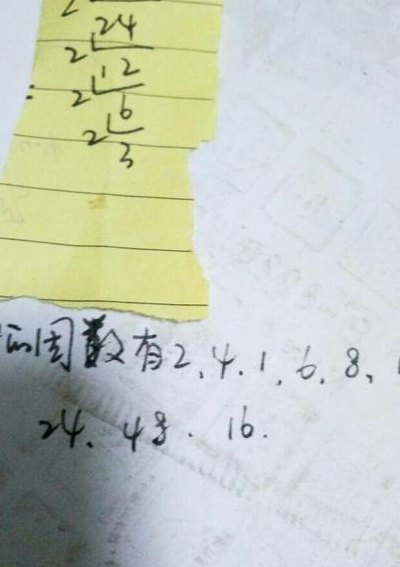 2 24
2 12
: 2 6
2 3
的因数有2、4、1、6、8、
24、48、16.